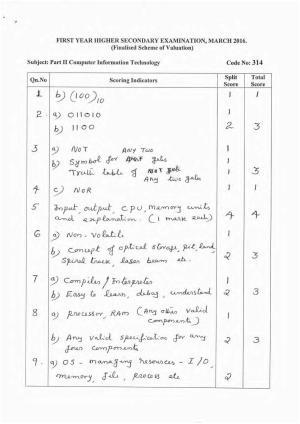 FIRST YEAR HIGHER SECONDARY EXAMINATION, MARCH 2016.
(Finalised Scheme of Valuation)
Subject: Part II Computer Information Technology Code No: 314
Qn.No Scoring Indicators Split Score Total Score
1. b) (100)10 1 1
2. a) 011010 1
b) 1100 2 3
3 a) NOT Any Two 1
b) Symbol for gate
Truth table of gate 1 3
Any two gates
4 c) NOR 1 1
5 Input, output, CPU, memory units
and explanation. (1 mark each) 4 4
6 a) Non-Volatile 1
b) Concept of optical storage, pit, land,
Spiral track, laser beam etc. 2 3
7 a) Compiler / Interpreter 1
b) Easy to learn, debug, understand 2 3
8 a) Processor, RAM (Any other valid
components) 1
b) Any valid specification for any
four components 2 3
9. a) OS - managing resources - I/O,
memory, file, process etc 2